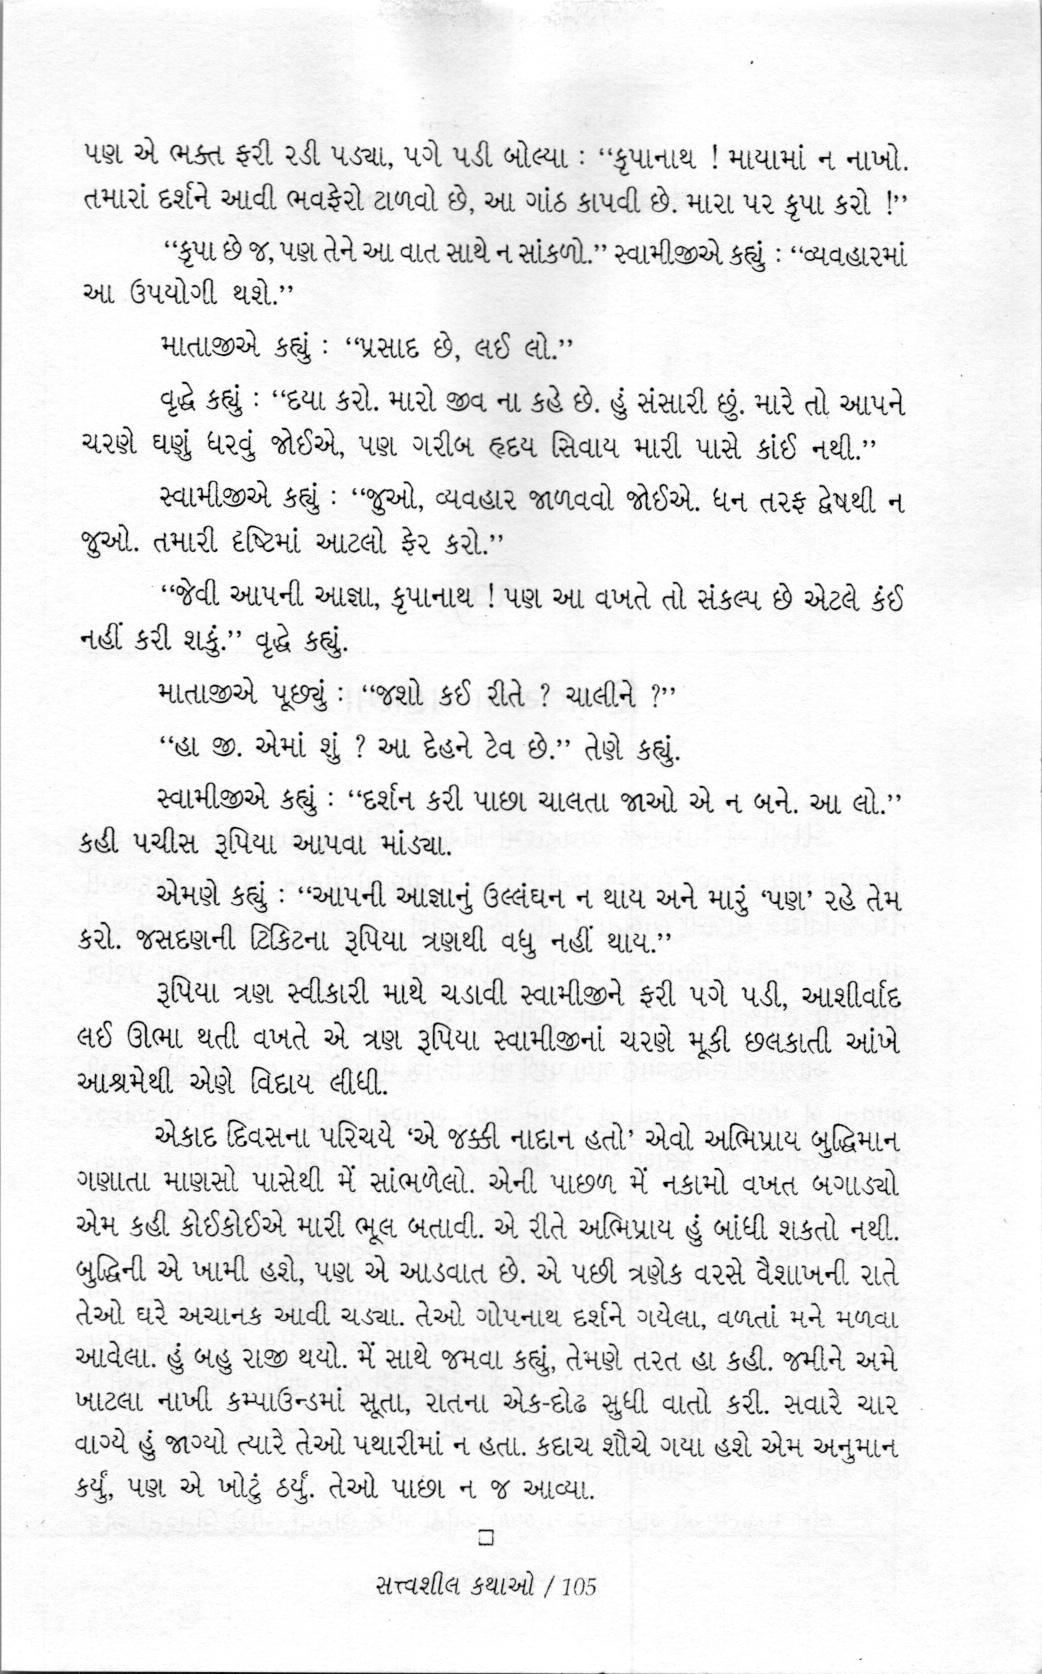 પણ એ ભક્ત ફરી રડી પડ્યા, પગે પડી બોલ્યા : “કૃપાનાથ ! માયામાં ન નાખો.
તમારાં દર્શને આવી ભવફેરો ટાળવો છે, આ ગાંઠ કાપવી છે. મારા પર કૃપા કરો !”
“કૃપા છે જ, પણ તેને આ વાત સાથે ન સાંકળો.” સ્વામીજીએ કહ્યું : “વ્યવહારમાં
આ ઉપયોગી થશે.”
માતાજીએ કહ્યું : “પ્રસાદ છે, લઈ લો.”
વૃદ્ધે કહ્યું : “દયા કરો. મારો જીવ ના કહે છે. હું સંસારી છું. મારે તો આપને
ચરણે ઘણું ધરવું જોઈએ, પણ ગરીબ હૃદય સિવાય મારી પાસે કાંઈ નથી.”
સ્વામીજીએ કહ્યું : “જુઓ, વ્યવહાર જાળવવો જોઈએ. ધન તરફ દ્વેષથી ન
જુઓ. તમારી દૃષ્ટિમાં આટલો ફેર કરો.”
“જેવી આપની આજ્ઞા, કૃપાનાથ ! પણ આ વખતે તો સંકલ્પ છે એટલે કંઈ
નહીં કરી શકું.” વૃદ્ધે કહ્યું.
માતાજીએ પૂછ્યું : “જશો કઈ રીતે ? ચાલીને ?”
“હા જી. એમાં શું ? આ દેહને ટેવ છે.” તેણે કહ્યું.
સ્વામીજીએ કહ્યું : “દર્શન કરી પાછા ચાલતા જાઓ એ ન બને. આ લો.”
કહી પચીસ રૂપિયા આપવા માંડ્યા.
એમણે કહ્યું : “આપની આજ્ઞાનું ઉલ્લંઘન ન થાય અને મારું ‘પણ’ રહે તેમ
કરો. જસદણની ટિકિટના રૂપિયા ત્રણથી વધુ નહીં થાય.”
રૂપિયા ત્રણ સ્વીકારી માથે ચડાવી સ્વામીજીને ફરી પગે પડી, આશીર્વાદ
લઈ ઊભા થતી વખતે એ ત્રણ રૂપિયા સ્વામીજીનાં ચરણે મૂકી છલકાતી આંખે
આશ્રમેથી એણે વિદાય લીધી.
એકાદ દિવસના પરિચયે ‘એ જક્કી નાદાન હતો’ એવો અભિપ્રાય બુદ્ધિમાન
ગણાતા માણસો પાસેથી મેં સાંભળેલો. એની પાછળ મેં નકામો વખત બગાડ્યો
એમ કહી કોઈકોઈએ મારી ભૂલ બતાવી. એ રીતે અભિપ્રાય હું બાંધી શકતો નથી.
બુદ્ધિની એ ખામી હશે, પણ એ આડવાત છે. એ પછી ત્રણેક વરસે વૈશાખની રાતે
તેઓ ઘરે અચાનક આવી ચડ્યા. તેઓ ગોપનાથ દર્શને ગયેલા, વળતાં મને મળવા
આવેલા. હું બહુ રાજી થયો. મેં સાથે જમવા કહ્યું, તેમણે તરત હા કહી. જમીને અમે
ખાટલા નાખી કમ્પાઉન્ડમાં સૂતા, રાતના એક-દોઢ સુધી વાતો કરી. સવારે ચાર
વાગ્યે હું જાગ્યો ત્યારે તેઓ પથારીમાં ન હતા. કદાચ શૌચે ગયા હશે એમ અનુમાન
કર્યું, પણ એ ખોટું ઠર્યું. તેઓ પાછા ન જ આવ્યા.
સત્ત્વશીલ કથાઓ / 105